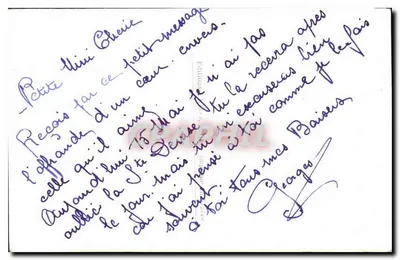 Petite Mimi Chérie
Reçois par ce petit message
l'offrande d'un cœur envers
celle qu'il aime
Aujourd'hui 15 Mai je n'ai pas
oublié la Ste Denise tu la recevra après
le jour. mais tu m'excuseras bien
car j'ai pensé à toi comme je le fais
souvent.
à toi tous mes Baisers
Georges